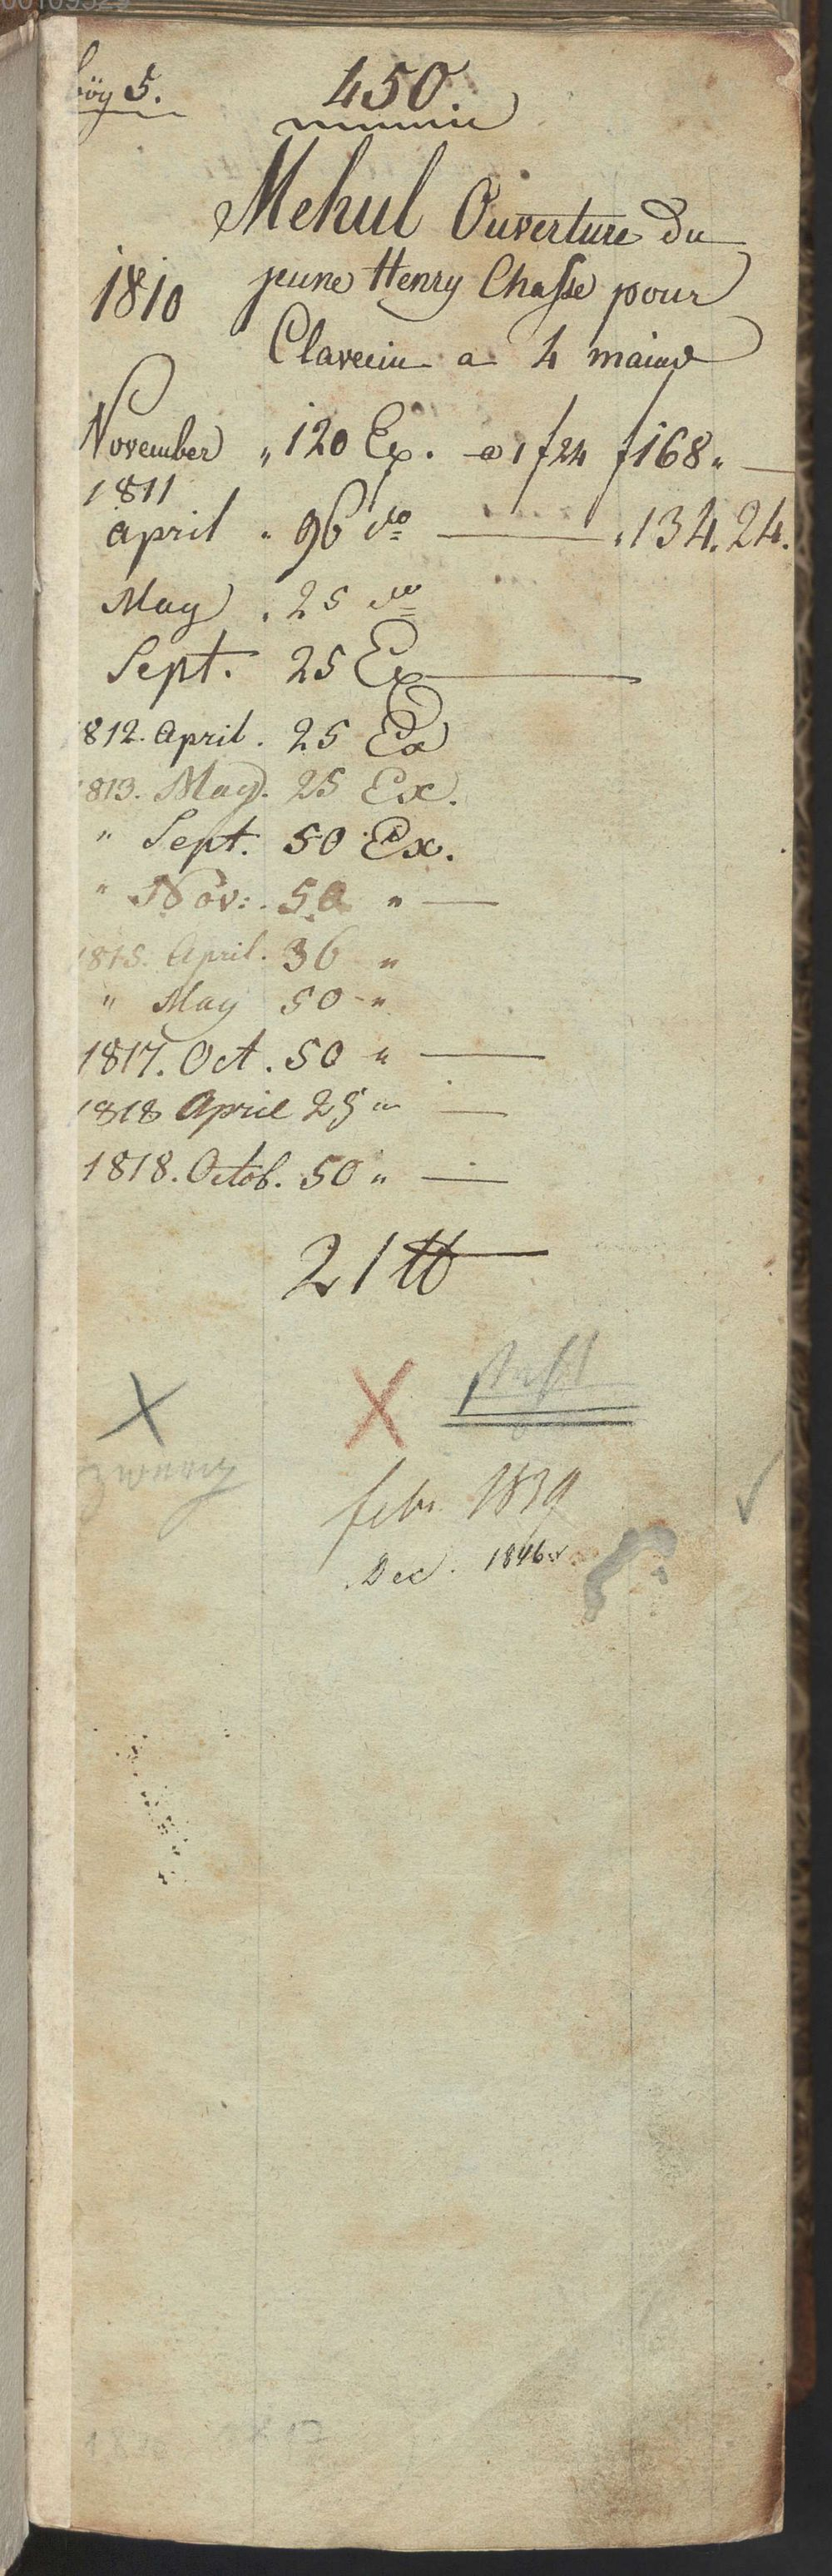 bög 5.
450.
Mehul Ouverture du
1810 jeune Henry Chasse pour
Clavecin a 4 mains
November „ 120 Ex. a 1 f 24 f 168 „ —
1811
april „ 96 do — „ 134. 24.
May „ 25 do
Sept. 25 Ex —
812. April. 25 Ex
813. May. 25 Ex.
" Sept. 50 Ex.
" Nov: . 50 " —
1815. April. 36 "
" May 50 - "
1817. Oct. 50 " —
1818 April 25 " —
1818. Octob. 50 " —
21 ℔
X X
febr. 1839
Dec. 1846